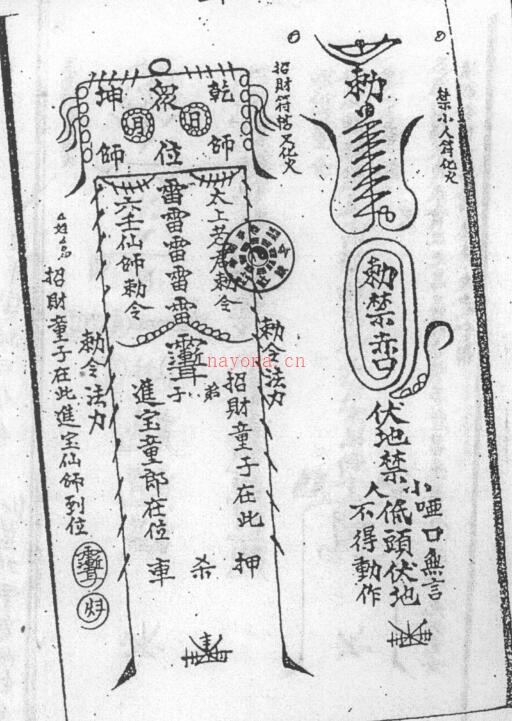 禁小人符化火
勅
勅禁赤口
伏地禁
小人
啞口無言
低頭伏地
不得動作
招財符搭文化火
乾師
衆位
坤師
日
月
太上老君勅令
雷雷雷雷雷
六壬仙師勅令
勅令法力
勅令法力
弟子
招財童子在此
進宝童郎在位
押杀車
招財童子在此進宝仙師到位
nayona.cn